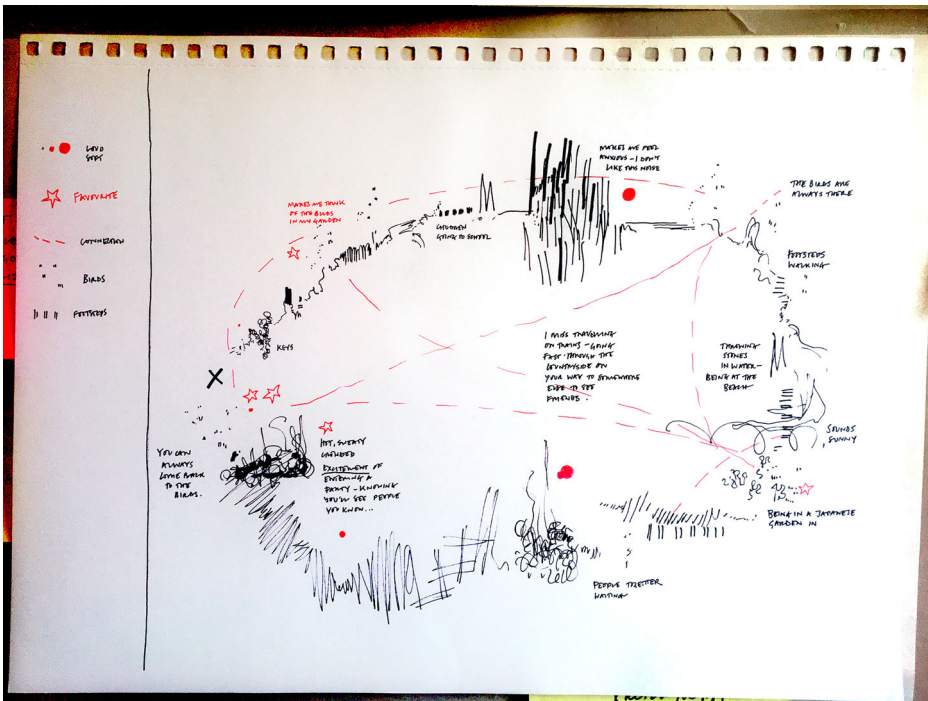 LOUD
SPOTS
FAVOURITE
CONNECTION
BIRDS
FOOTSTEPS
MAKES ME THINK
OF THE BIRDS
IN MY GARDEN
CHILDREN
GOING TO SCHOOL
MAKES ME FEEL
ANXIOUS – I DON'T
LIKE THIS NOISE
THE BIRDS ARE
ALWAYS THERE
FOOTSTEPS
WALKING
KEYS
X
I MISS TRAVELLING
ON TRAINS – GOING
FAST THROUGH THE
COUNTRYSIDE ON
YOUR WAY TO SOMEWHERE
ELSE TO SEE
FRIENDS.
THROWING
STONES
IN WATER –
BEING AT THE
BEACH
SOUNDS
SUNNY
YOU CAN
ALWAYS
COME BACK
TO THE
BIRDS.
HOT, SWEATY
CROWDED
EXCITEMENT OF
ENTERING A
PARTY – KNOWING
YOU'LL SEE PEOPLE
YOU KNOW...
BEING IN A JAPANESE
GARDEN IN
PEOPLE TOGETHER
WAITING